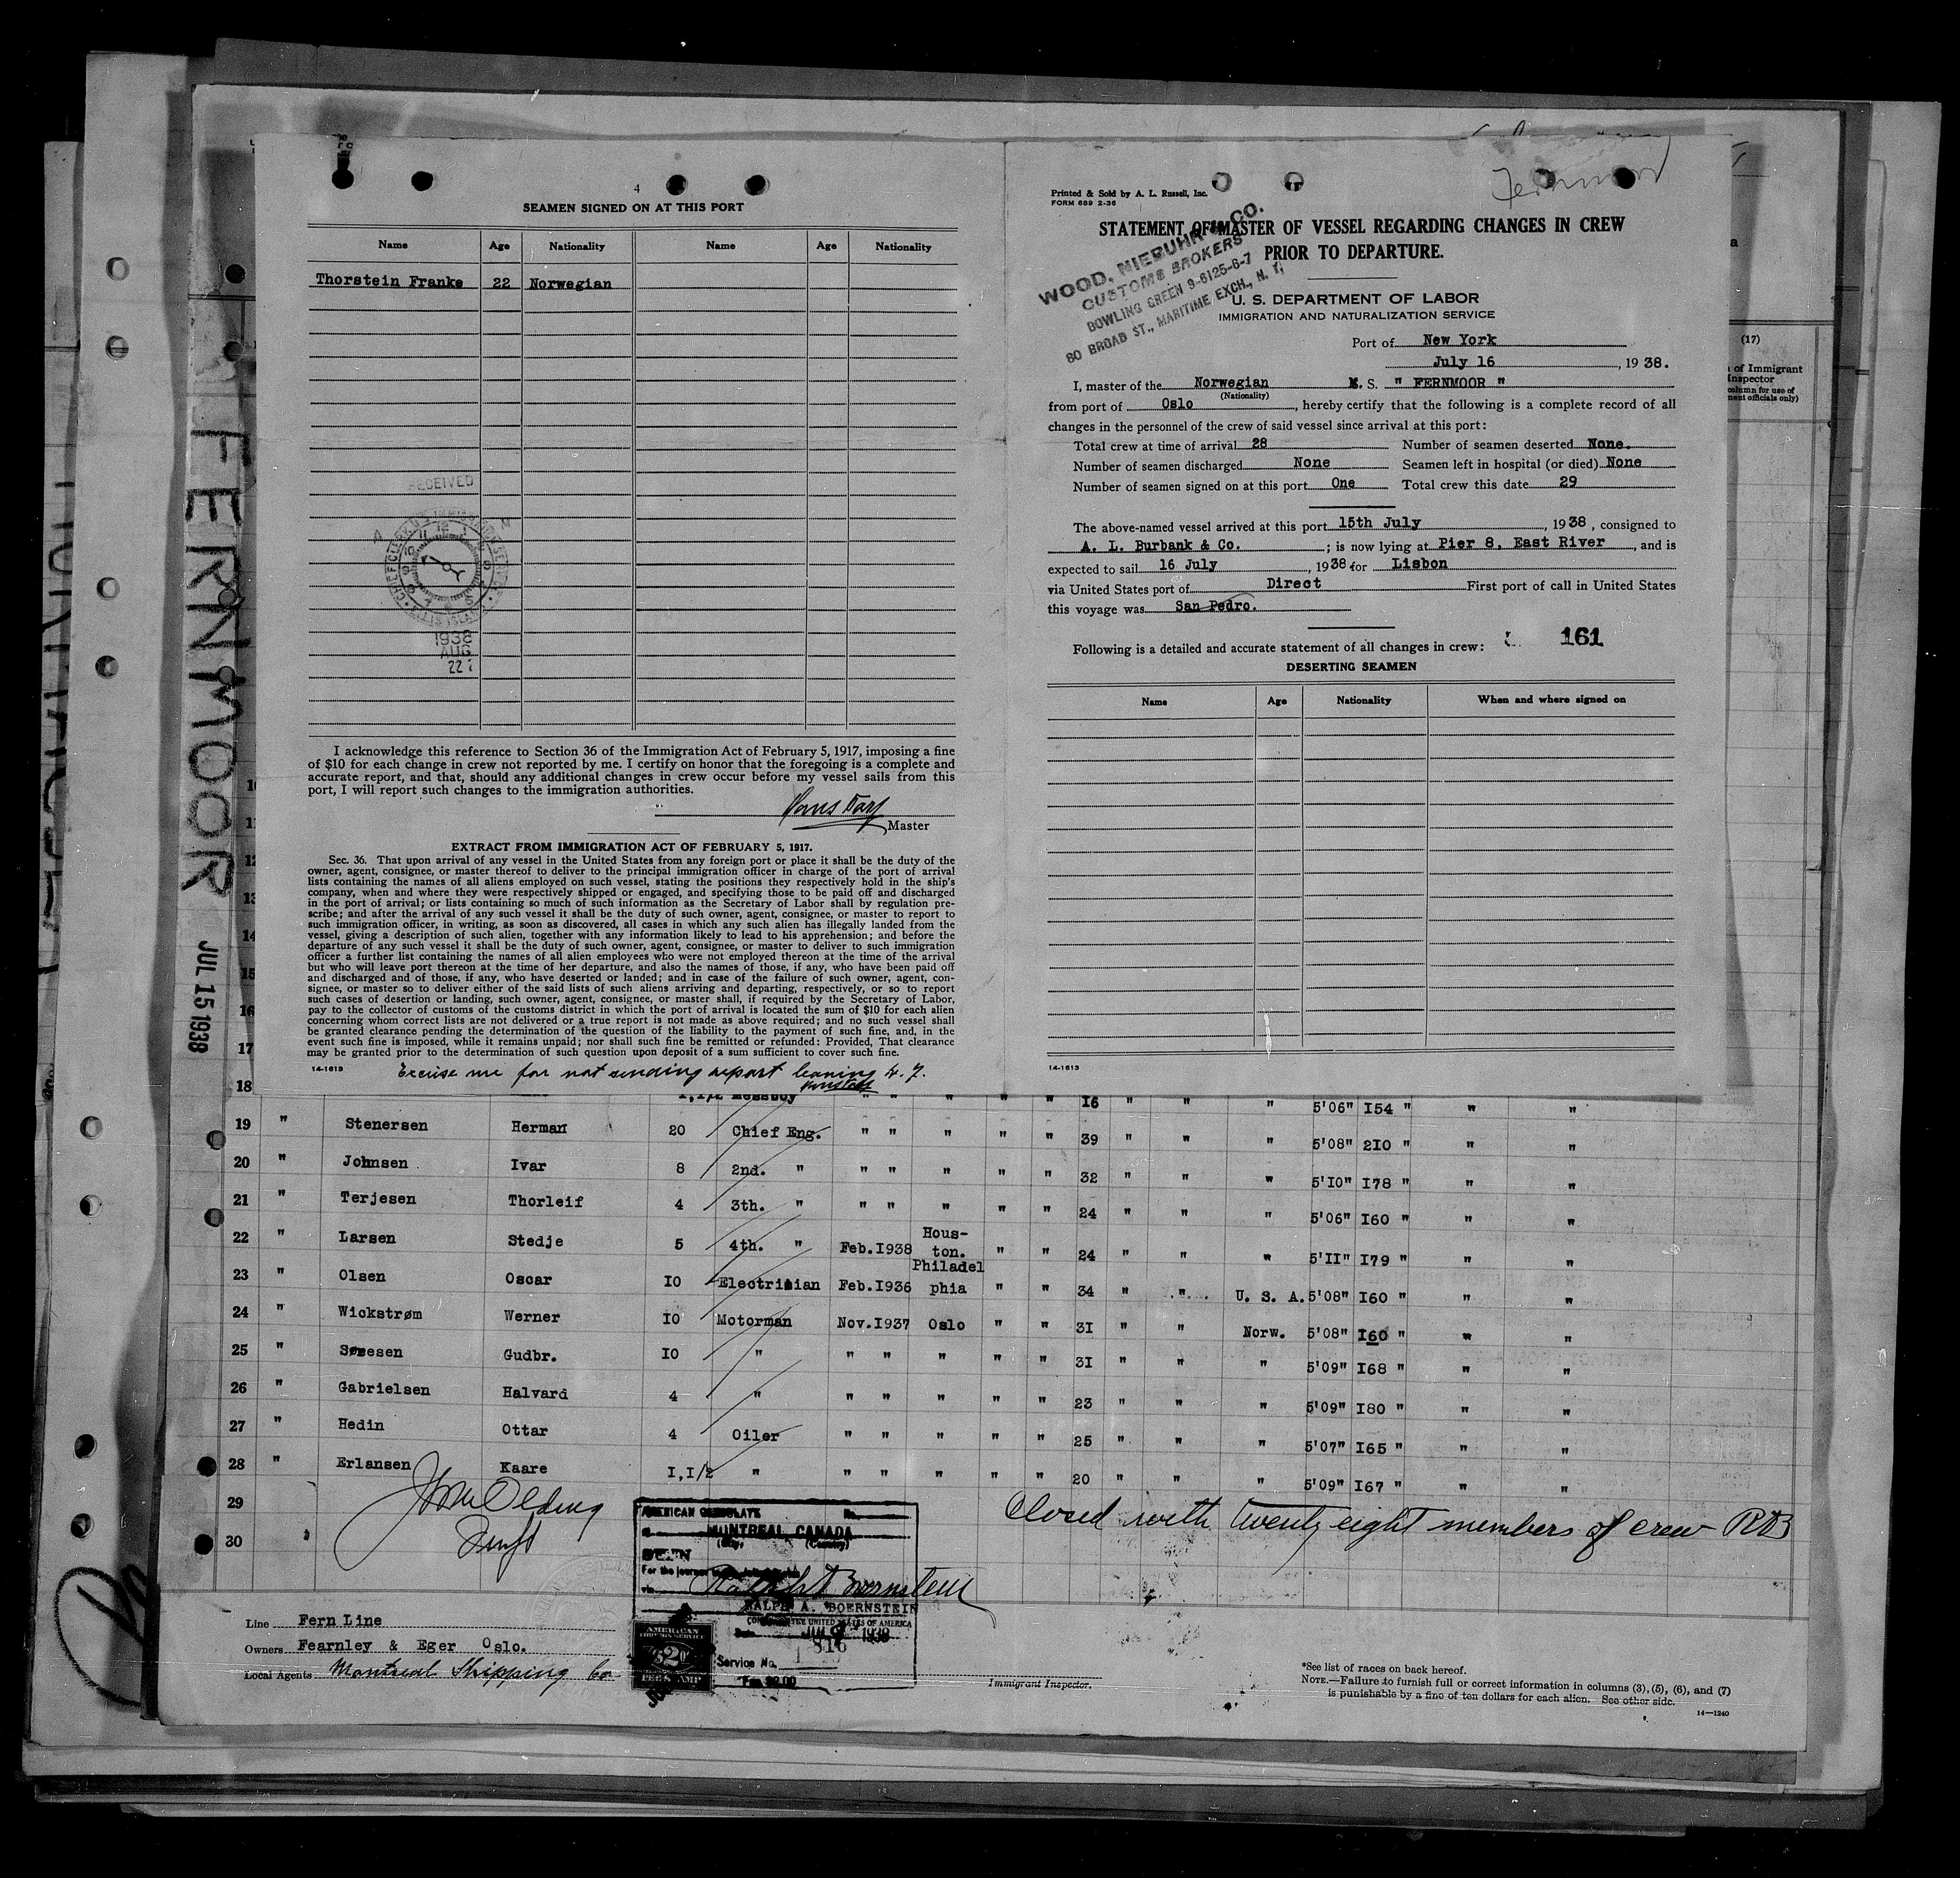 4
SEAMEN SIGNED ON AT THIS PORT
Name Age Nationality Name Age Nationality
Thorstein Franke 22 Norwegian
RECEIVED
1938
AUG
22
I acknowledge this reference to Section 36 of the Immigration Act of February 5, 1917, imposing a fine
of $10 for each change in crew not reported by me. I certify on honor that the foregoing is a complete and
accurate report, and that, should any additional changes in crew occur before my vessel sails from this
port, I will report such changes to the immigration authorities.
Master
EXTRACT FROM IMMIGRATION ACT OF FEBRUARY 5, 1917.
Sec. 36. That upon arrival of any vessel in the United States from any foreign port or place it shall be the duty of the
owner, agent, consignee, or master thereof to deliver to the principal immigration officer in charge of the port of arrival
lists containing the names of all aliens employed on such vessel, stating the positions they respectively hold in the ship's
company, when and where they were respectively shipped or engaged, and specifying those to be paid off and discharged
in the port of arrival; or lists containing so much of such information as the Secretary of Labor shall by regulation pre-
scribe; and after the arrival of any such vessel it shall be the duty of such owner, agent, consignee, or master to report to
such immigration officer, in writing, as soon as discovered, all cases in which any such alien has illegally landed from the
vessel, giving a description of such alien, together with any information likely to lead to his apprehension; and before the
departure of any such vessel it shall be the duty of such owner, agent, consignee, or master to deliver to such immigration
officer a further list containing the names of all alien employees who were not employed thereon at the time of the arrival
but who will leave port thereon at the time of her departure, and also the names of those, if any, who have been paid off
and discharged and of those, if any, who have deserted or landed; and in case of the failure of such owner, agent, con-
signee, or master so to deliver either of the said lists of such aliens arriving and departing, respectively, or so to report
such cases of desertion or landing, such owner, agent, consignee, or master shall, if required by the Secretary of Labor,
pay to the collector of customs of the customs district in which the port of arrival is located the sum of $10 for each alien
concerning whom correct lists are not delivered or a true report is not made as above required; and no such vessel shall
be granted clearance pending the determination of the question of the liability to the payment of such fine, and, in the
event such fine is imposed, while it remains unpaid; nor shall such fine be remitted or refunded: Provided, That clearance
may be granted prior to the determination of such question upon deposit of a sum sufficient to cover such fine.
14-1613
Excuse me for not sending report leaving N. Y.
Fernmoor
Printed & Sold by A. L. Russell, Inc.
FORM 689 2-36
STATEMENT OF MASTER OF VESSEL REGARDING CHANGES IN CREW
PRIOR TO DEPARTURE.
WOOD, NIEBUHR & CO.
CUSTOMS BROKERS
BOWLING GREEN 9-6125-6-7
80 BROAD ST., MARITIME EXCH., N. Y.
U. S. DEPARTMENT OF LABOR
IMMIGRATION AND NATURALIZATION SERVICE
Port of New York
July 16, 1938.
I, master of the Norwegian M. S. " FERNMOOR "
(Nationality)
from port of Oslo, hereby certify that the following is a complete record of all
changes in the personnel of the crew of said vessel since arrival at this port:
Total crew at time of arrival 28 Number of seamen deserted None.
Number of seamen discharged None Seamen left in hospital (or died) None
Number of seamen signed on at this port One Total crew this date 29
The above-named vessel arrived at this port 15th July, 1938, consigned to
A. L. Burbank & Co.; is now lying at Pier 8, East River, and is
expected to sail 16 July, 1938 for Lisbon
via United States port of Direct First port of call in United States
this voyage was San Pedro.
Following is a detailed and accurate statement of all changes in crew: 161
DESERTING SEAMEN
Name Age Nationality When and where signed on
14-1613
(17)
of Immigrant
Inspector
column for use of
ment officials only)
FERNMOOR
JUL 15 1938
10
11
12
13
14
15
16
17
18 1,1/2 Messboy " " " " " 16 " " " 5'06" I54 " " "
19 " Stenersen Herman 20 Chief Eng. " " " " " 39 " " " 5'08" 2I0 " " "
20 " Johnsen Ivar 8 2nd. " " " " " " 32 " " " 5'I0" I78 " " "
21 " Terjesen Thorleif 4 3th. " " " " " " 24 " " " 5'06" I60 " " "
22 " Larsen Stedje 5 4th. " Feb.I938 Hous-ton. " " 24 " " " 5'II" I79 " " "
23 " Olsen Oscar I0 Electrician Feb.I936 Philadelphia " " 34 " " U. S. A. 5'08" I60 " " "
24 " Wickstrøm Werner I0 Motorman Nov.I937 Oslo " " 3I " " Norw. 5'08" I60 " " "
25 " Gudbr. I0 " " " " " " 3I " " " 5'09" I68 " " "
26 " Gabrielsen Halvard 4 " " " " " " 23 " " " 5'09" I80 " " "
27 " Hedin Ottar 4 Oiler " " " " " 25 " " " 5'07" I65 " " "
28 " Erlansen Kaare I,I/2 " " " " " " 20 " " " 5'09" I67 " " "
29
30
Closed with twenty eight members of crew RAB
AMERICAN CONSULATE No.
MONTREAL CANADA
(City) (Country)
SEEN
For the journey
via
Ralph A. Boernstein
RALPH A. BOERNSTEIN
CONSUL OF THE UNITED STATES OF AMERICA
Date 1938
816
Service No.
Fee $2.00
AMERICAN
FOREIGN SERVICE
$2
FEE STAMP
Line Fern Line
Owners Fearnley & Eger Oslo.
Local Agents Montreal Shipping Co
Immigrant Inspector.
*See list of races on back hereof.
NOTE.—Failure to furnish full or correct information in columns (3), (5), (6), and (7)
is punishable by a fine of ten dollars for each alien. See other side.
14—1240